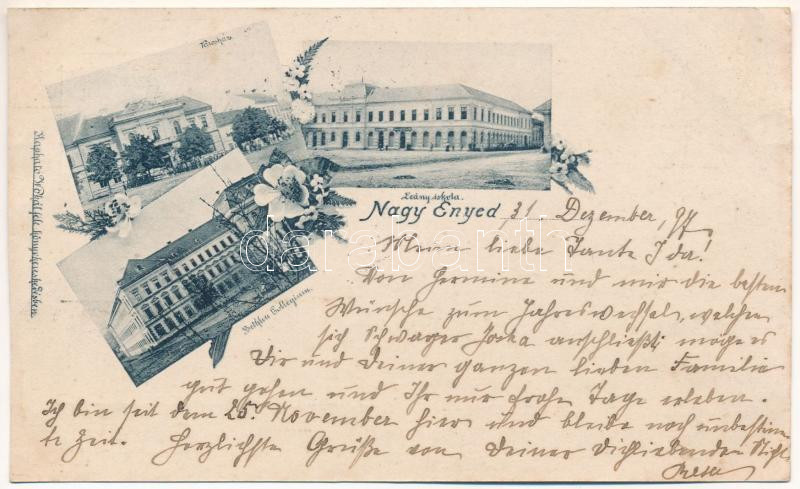 Városház.
Leány iskola.
Bethlen Collegium.
Nagy Enyed
Kapható Wokál féle könyvkereskedésben.
31 Dezember, 97
Meine liebe Tante Ida!
Von Hermine und mir die besten
Wünsche zum Jahreswechsel, welchen
sich Schwager anschließt; möge es
Dir und Deiner ganzen lieben Familie
gut gehen und Ihr nur frohe Tage erleben.
Ich bin seit dem 25. November hier und bleibe noch unbestimm-
te Zeit. Herzlichste Grüße von Deiner Dichliebenden
darabanth